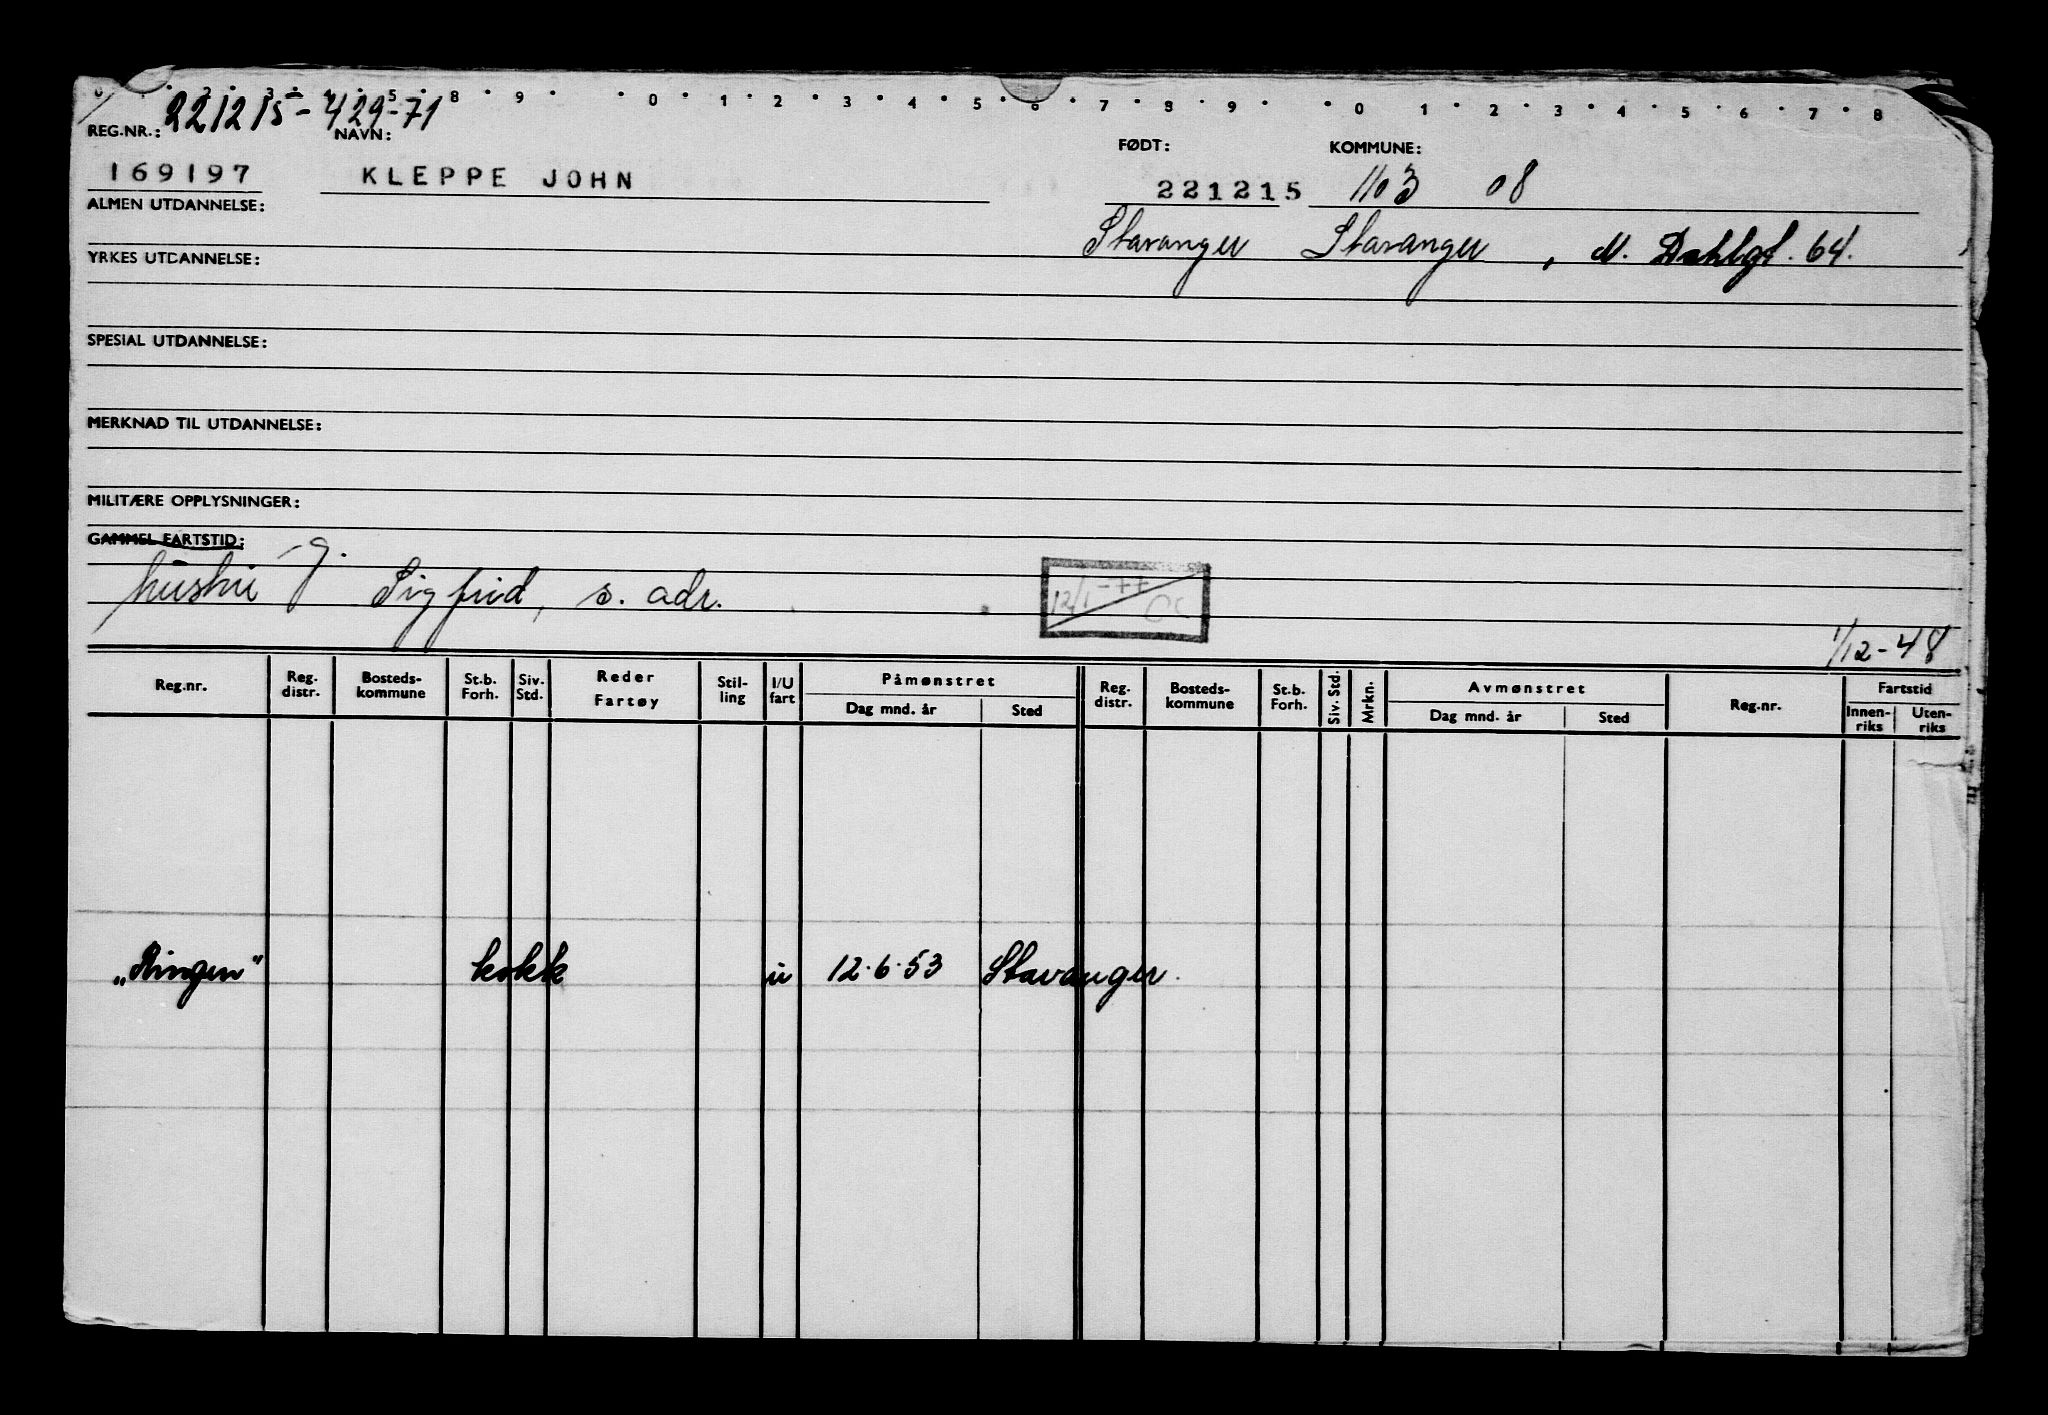 0 . 2 3 4 5 8 . 9 . . 0 . 1 . 2 . 3 . 4 . 5 . 6 . 7 . 8 . 9 . . 0 . 1 . 2 . 3 . 4 . 5 . 6 . 7 . 8
221215-429-71
REG.NR.: NAVN: FØDT: KOMMUNE:
169197 KLEPPE JOHN 221215 1103 08
ALMEN UTDANNELSE:
Stavanger Stavanger, N. Dahlgt. 64.
YRKES UTDANNELSE:
SPESIAL UTDANNELSE:
MERKNAD TIL UTDANNELSE:
MILITÆRE OPPLYSNINGER:
GAMMEL FARTSTID:
g.
hustru Sigfrid, s. adr.
12/1-77
1/12-48
Reg.nr. Reg. distr. Bosteds-kommune St.b. Forh. Siv. Std. Reder Fartøy Stil-ling I/U fart Påmønstret Dag mnd. år Sted Reg. distr. Bosteds-kommune St.b. Forh. Siv. Std. Mrkn. Avmønstret Dag mnd. år Sted Reg.nr. Fartstid Innen-riks Uten-riks
„Ringen" kokk u 12.6.53 Stavanger.